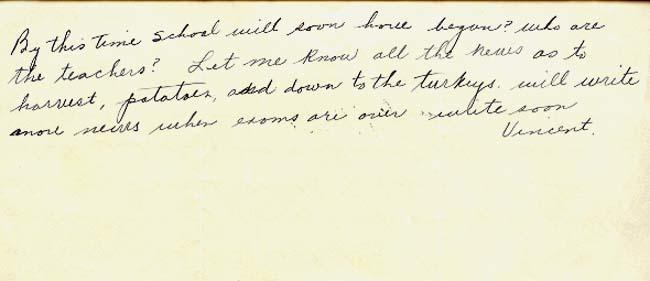 By this time school will soon have begun? who are
the teachers? Let me know all the news as to
harvest, potatoes, and down to the turkeys. will write
more news when exams are over write soon
Vincent.